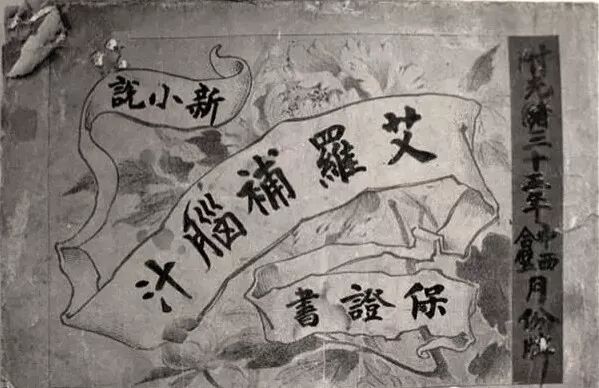 附光緒三十五年中西合璧月份牌
新小說
艾羅補腦汁
保證書